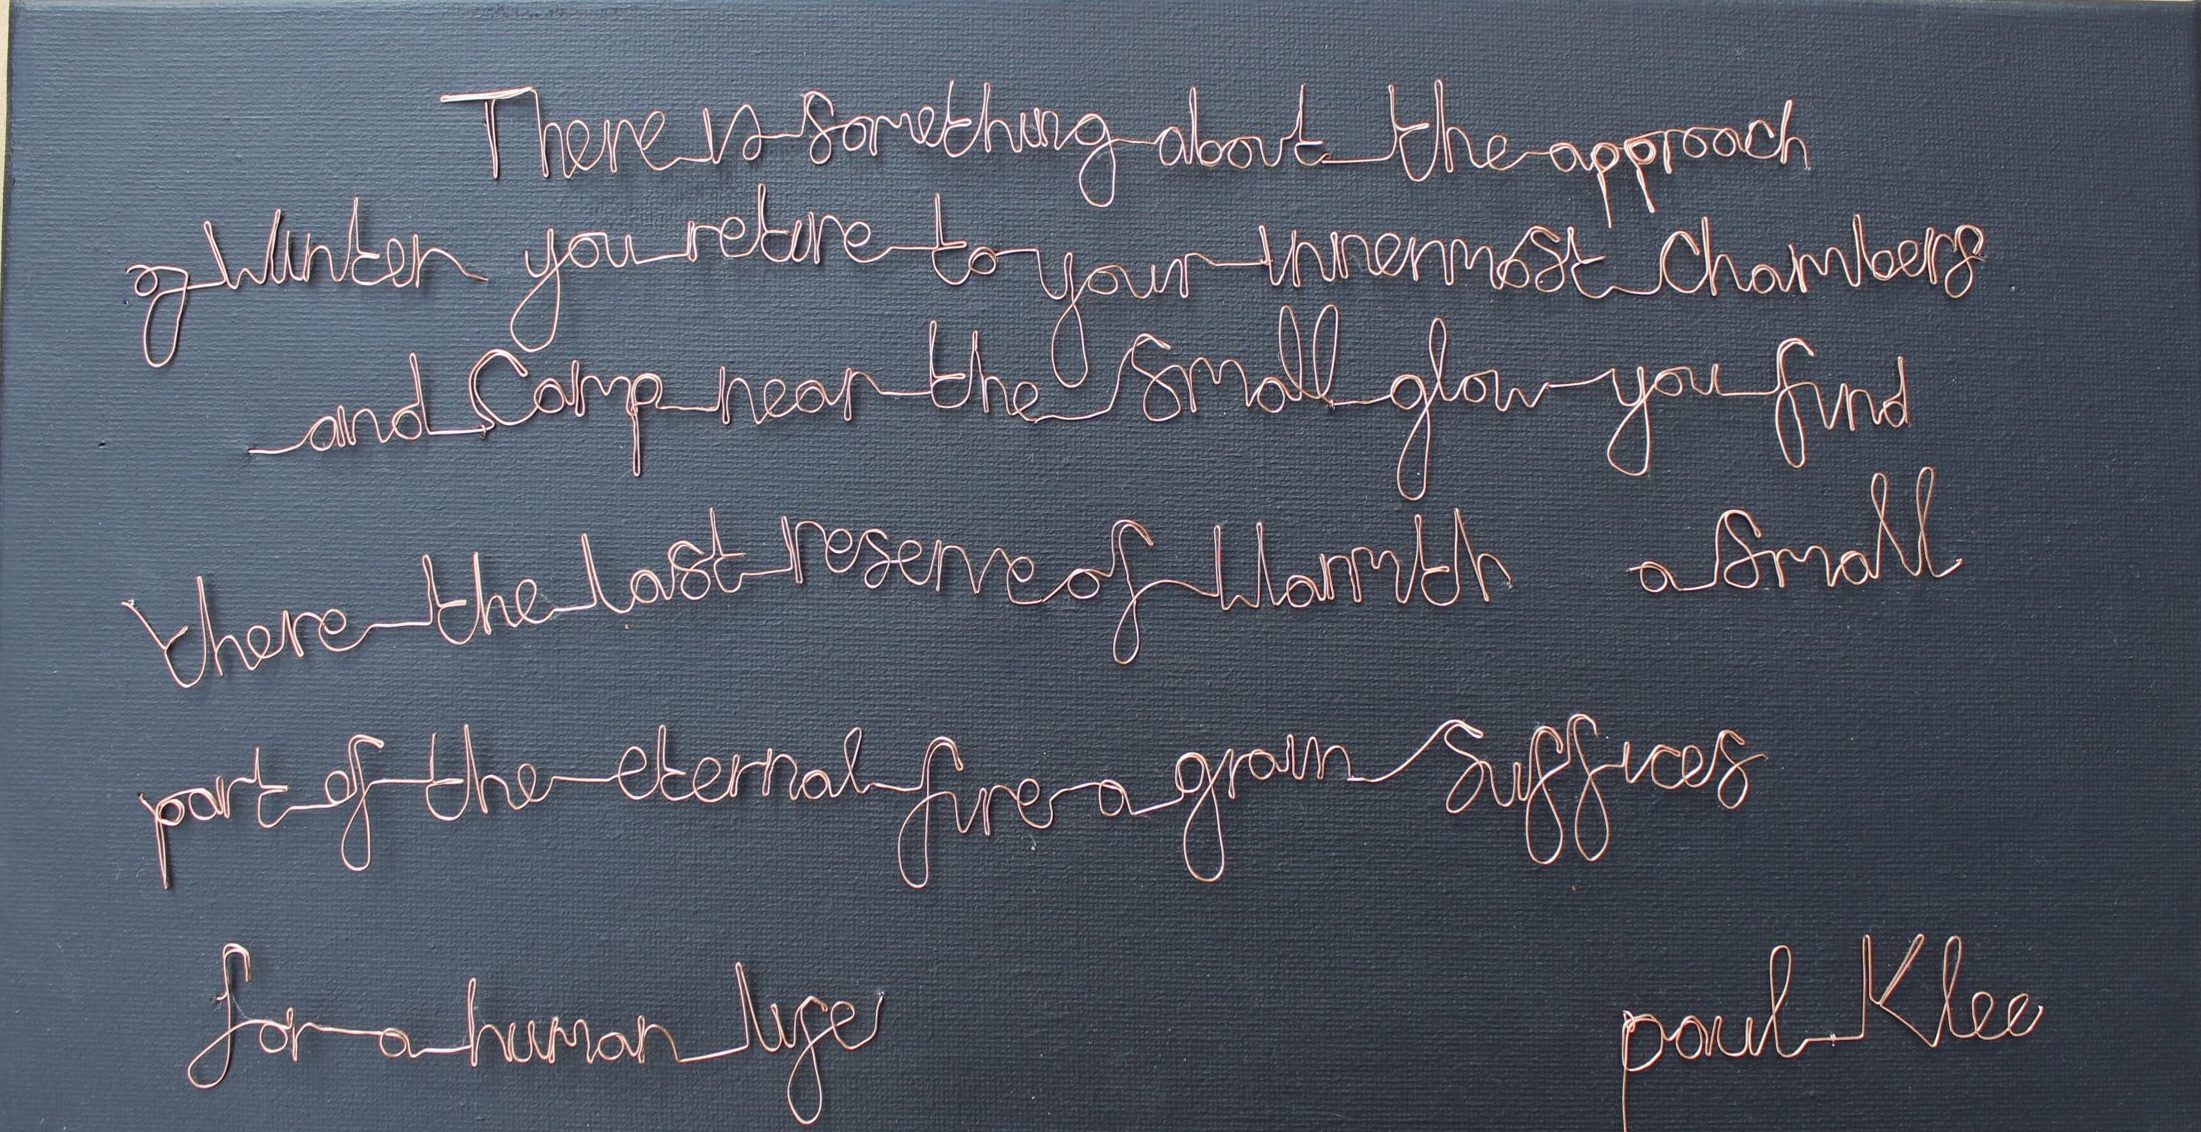 There is something about the approach
of Winter you retire to your innermost Chambers
and Camp near the small glow you find
there the last reserve of Warmth a small
part of the eternal fire a grain suffices
for a human life
paul Klee